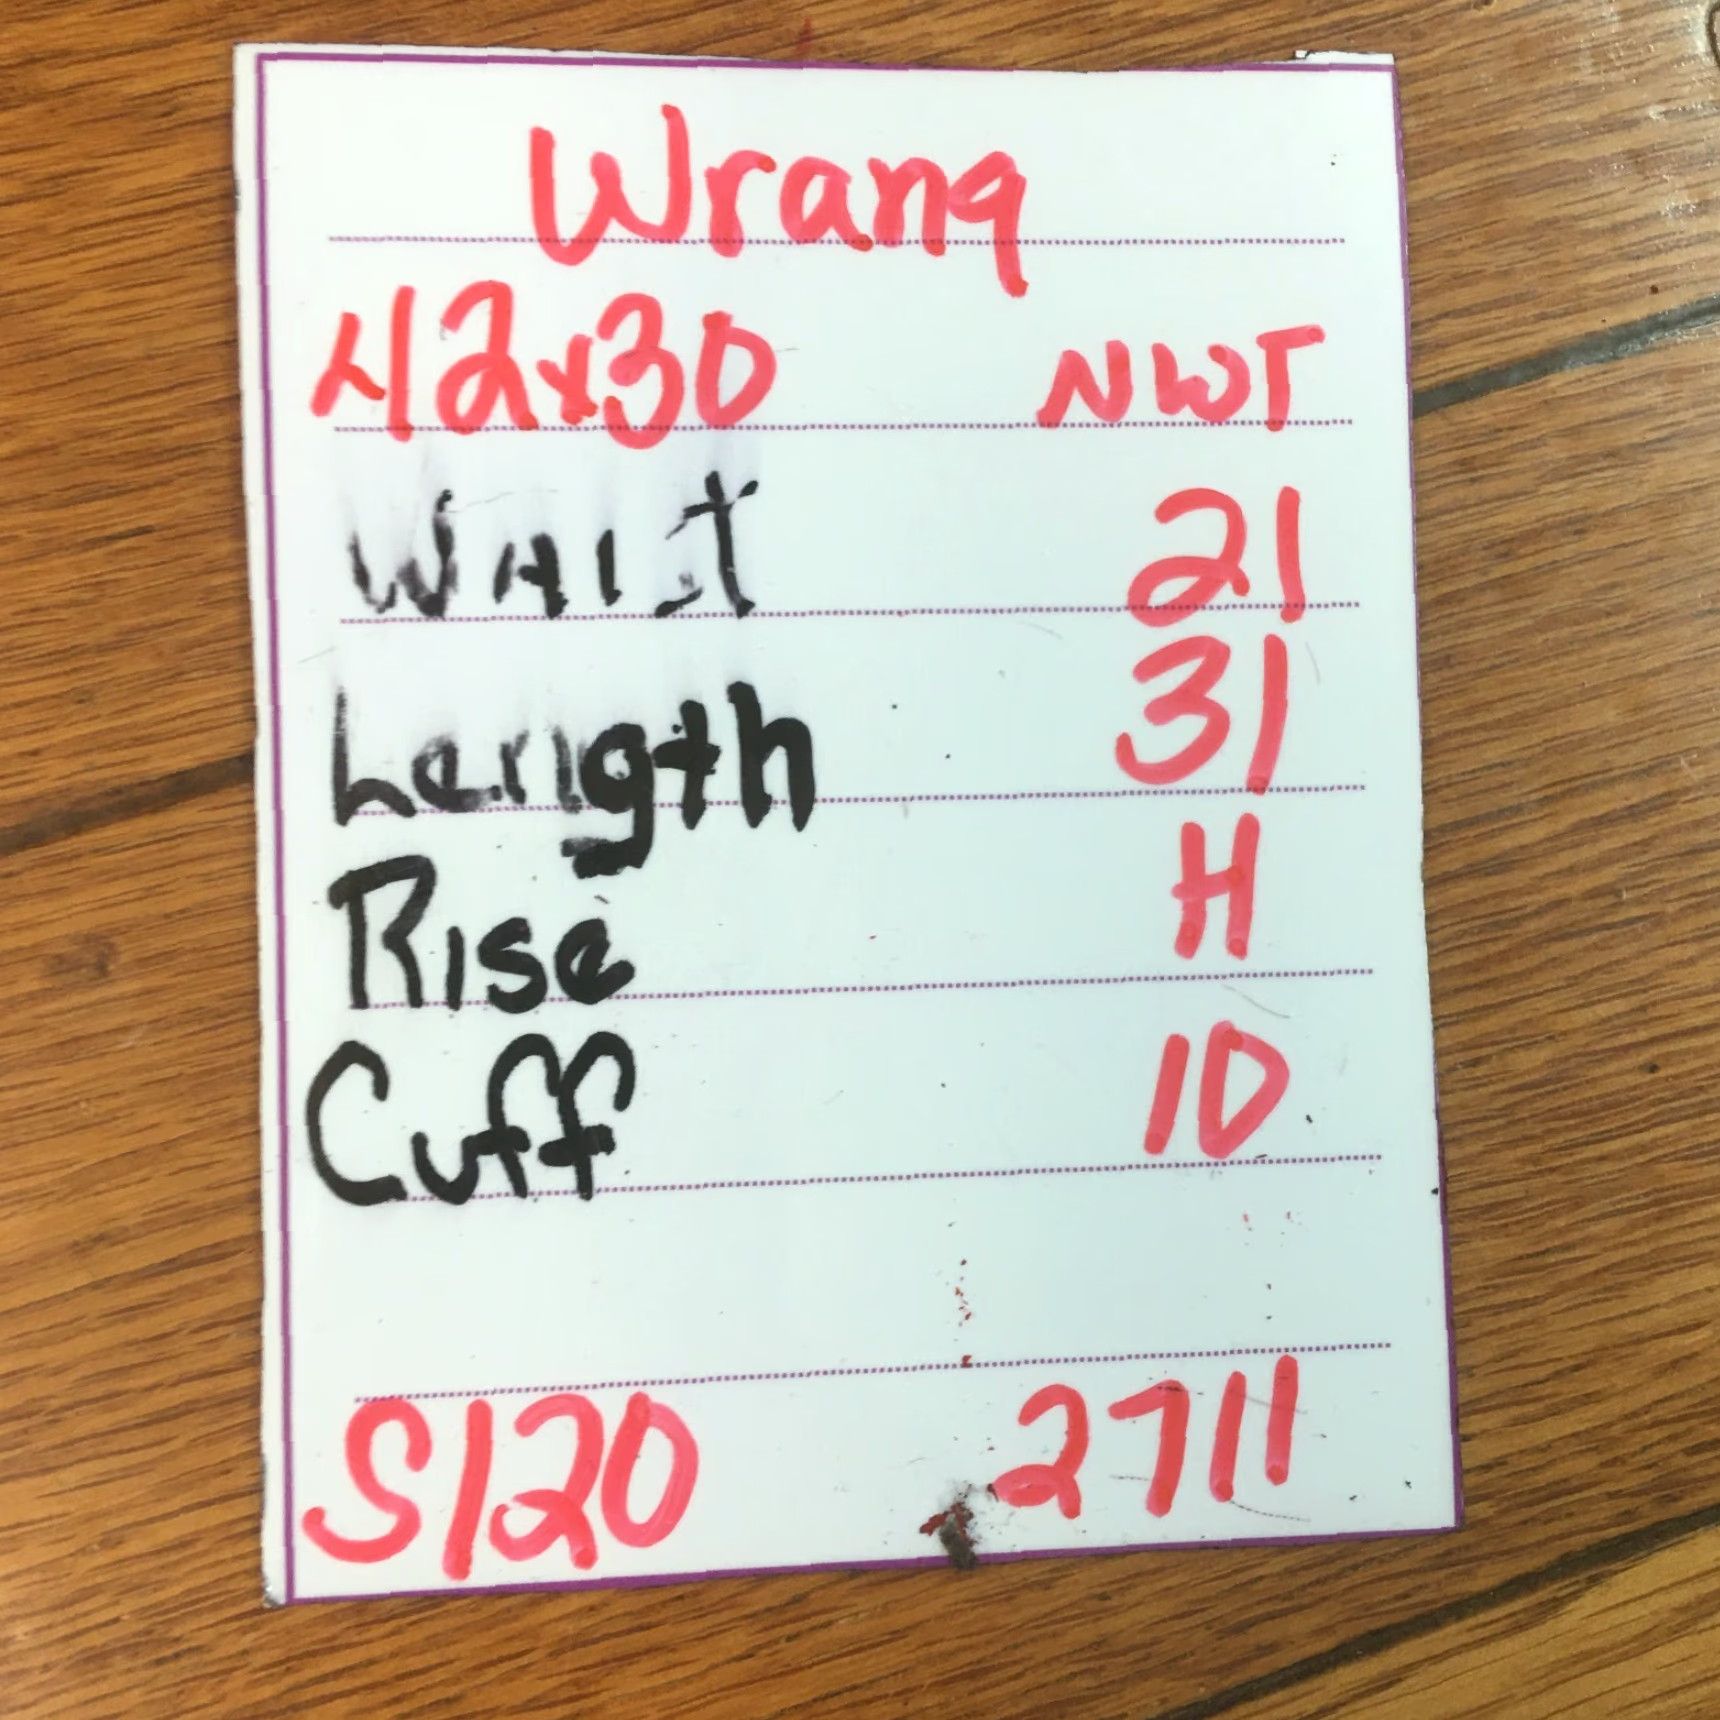 Wrang
42x30 NWT
WAIST 21
Length 31
Rise H
Cuff 10
S120 2711